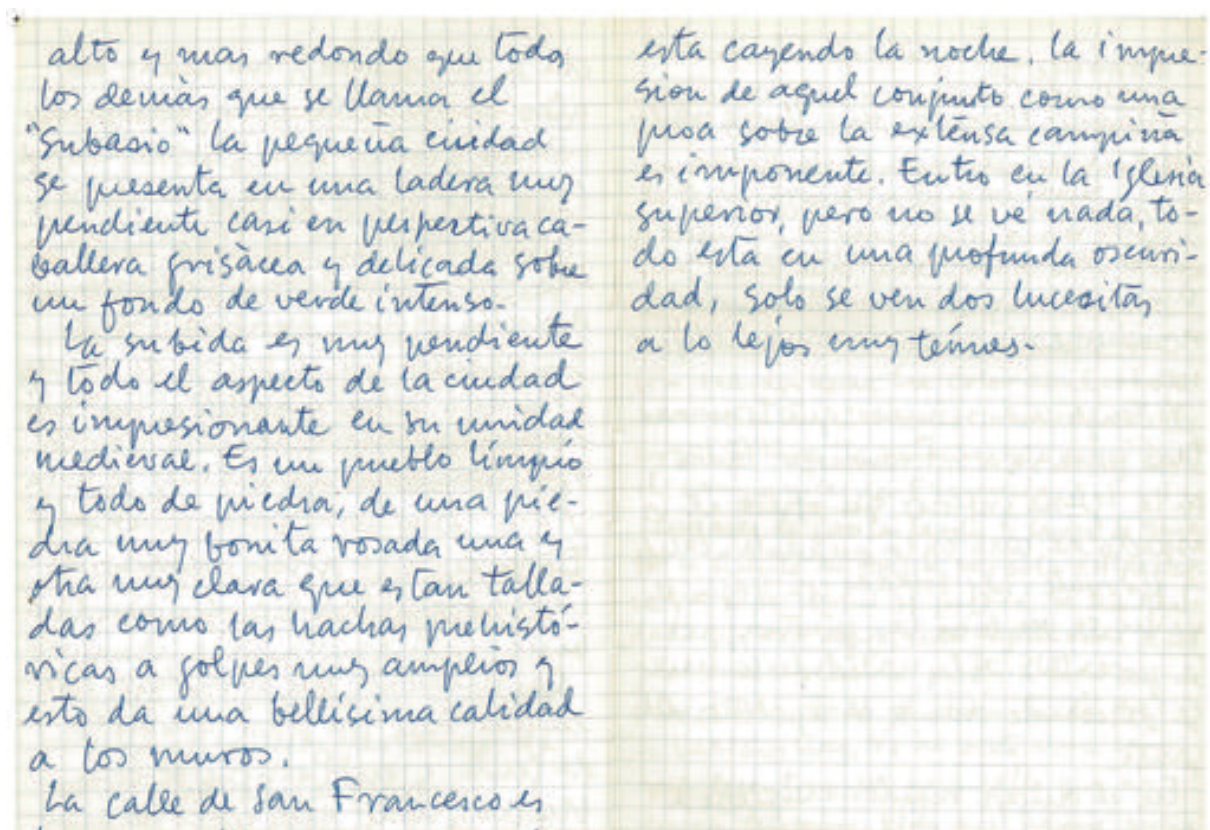 alto y mas redondo que todos
los demàs que se llama el
"Subasio" la pequeña ciudad
se presenta en una ladera muy
pendiente casi en perspectiva ca-
ballera grisàcea y delicada sobre
un fondo de verde intenso.
La subida es muy pendiente
y todo el aspecto de la ciudad
es impresionante en su unidad
medieval. Es un pueblo límpio
y todo de piedra, de una pie-
dra muy bonita rosada una y
otra muy clara que estan talla-
das como las hachas prehistó-
ricas a golpes muy amplios y
esto da una bellísima calidad
a los muros.
La calle de San Francesco es
esta cayendo la noche. la impre-
sion de aquel conjunto como una
proa sobre la extensa campiña
es imponente. Entro en la Iglesia
superior, pero no se vé nada, to-
do esta en una profunda oscuri-
dad, solo se ven dos lucesitas
a lo lejos muy ténues.